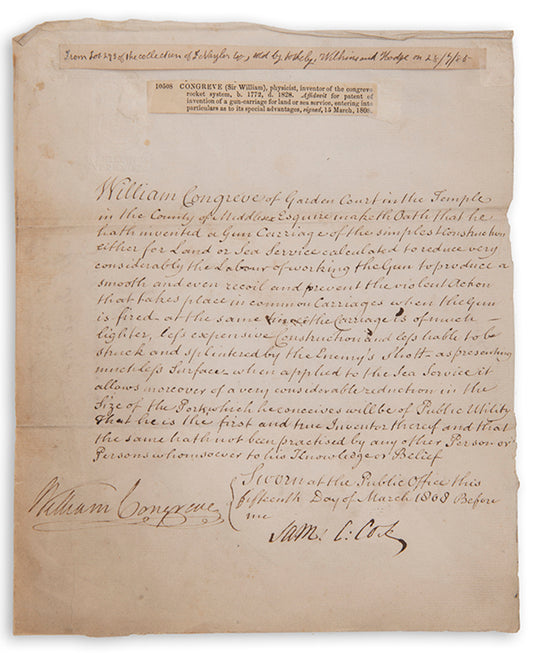 From Lot 273 of the collection of F. Naylor Esq, sold by Sotheby, Wilkins and Hodge on 28/7/85
10508 CONGREVE (Sir William), physicist, inventor of the congreve
rocket system, b. 1772, d. 1828. Affidavit for patent of
invention of a gun-carriage for land or sea service, entering into
particulars as to its special advantages, signed, 15 March, 1808.
William Congreve of Garden Court in the Temple
in the County of Middlesex Esquire maketh Oath that he
hath invented a Gun Carriage of the simplest Construction
either for Land or Sea Service calculated to reduce very
considerably the Labour of working the Gun to produce a
smooth and even recoil and prevent the violent Action
that takes place in common Carriages when the Gun
is fired at the same time the Carriage is of much
lighter, less expensive Construction and less liable to be
struck and splintered by the Enemy's Shott as presenting
much less Surface when applied to the Sea Service it
allows moreover of a very considerable reduction in the
Size of the Port which he conceives will be of Public Utility
that he is the first and true Inventor thereof and that
the same hath not been practised by any other Person or
Persons whomsoever to his Knowledge or Belief
Sworn at the Public Office this
fifteenth Day of March 1808 Before
me
William Congreve
Saml C: Cox